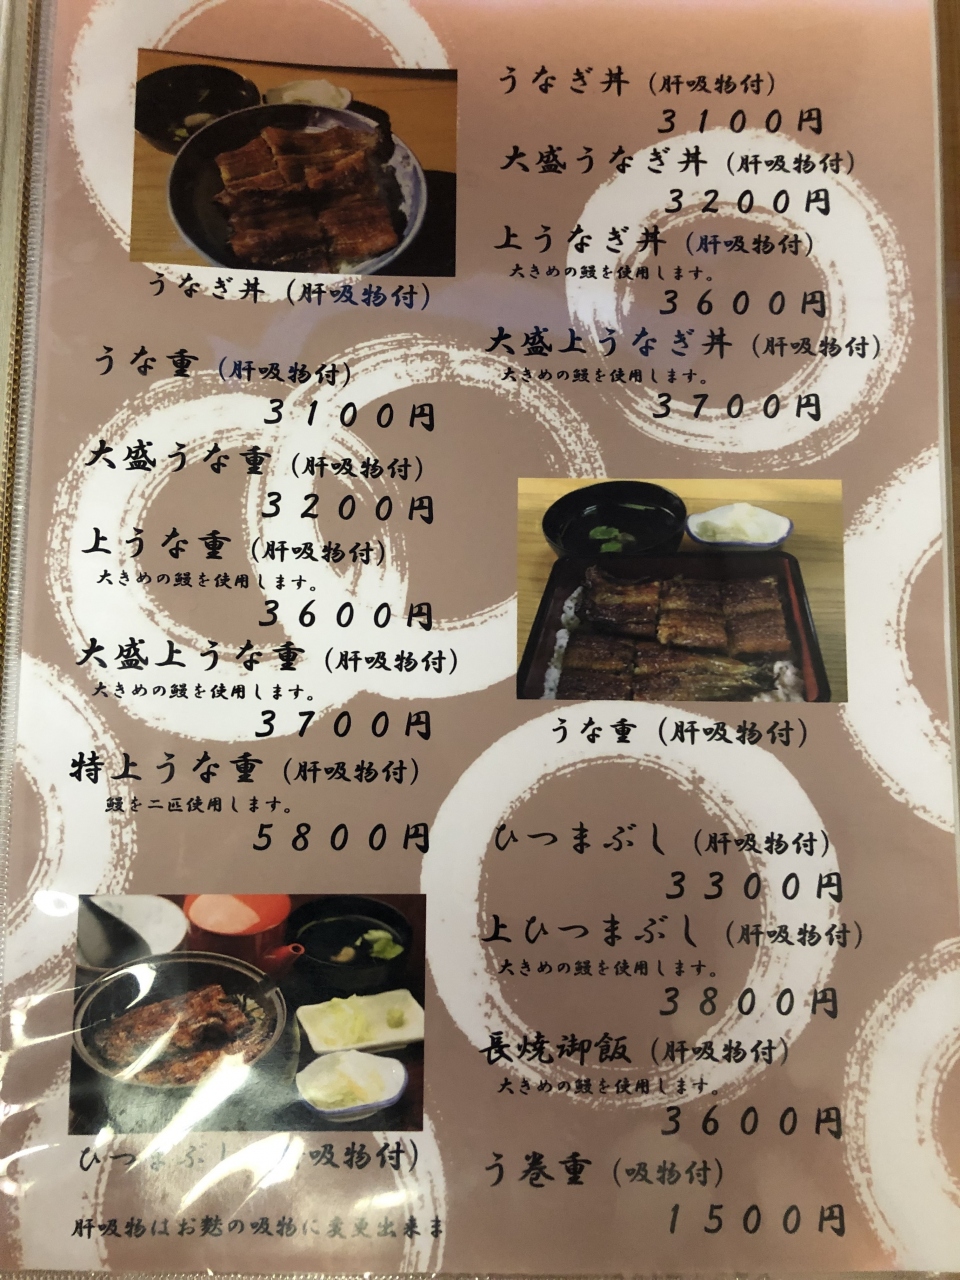 うなぎ丼（肝吸物付）
3100円
大盛うなぎ丼（肝吸物付）
3200円
上うなぎ丼（肝吸物付）
大きめの鰻を使用します。
3600円
大盛上うなぎ丼（肝吸物付）
大きめの鰻を使用します。
3700円
うなぎ丼（肝吸物付）
うな重（肝吸物付）
3100円
大盛うな重（肝吸物付）
3200円
上うな重（肝吸物付）
大きめの鰻を使用します。
3600円
大盛上うな重（肝吸物付）
大きめの鰻を使用します。
3700円
特上うな重（肝吸物付）
鰻を二匹使用します。
5800円
うな重（肝吸物付）
ひつまぶし（肝吸物付）
3300円
上ひつまぶし（肝吸物付）
大きめの鰻を使用します。
3800円
長焼御飯（肝吸物付）
大きめの鰻を使用します。
3600円
う巻重（吸物付）
1500円
ひつまぶし 吸物付）
肝吸物はお麩の吸物に変更出来ま